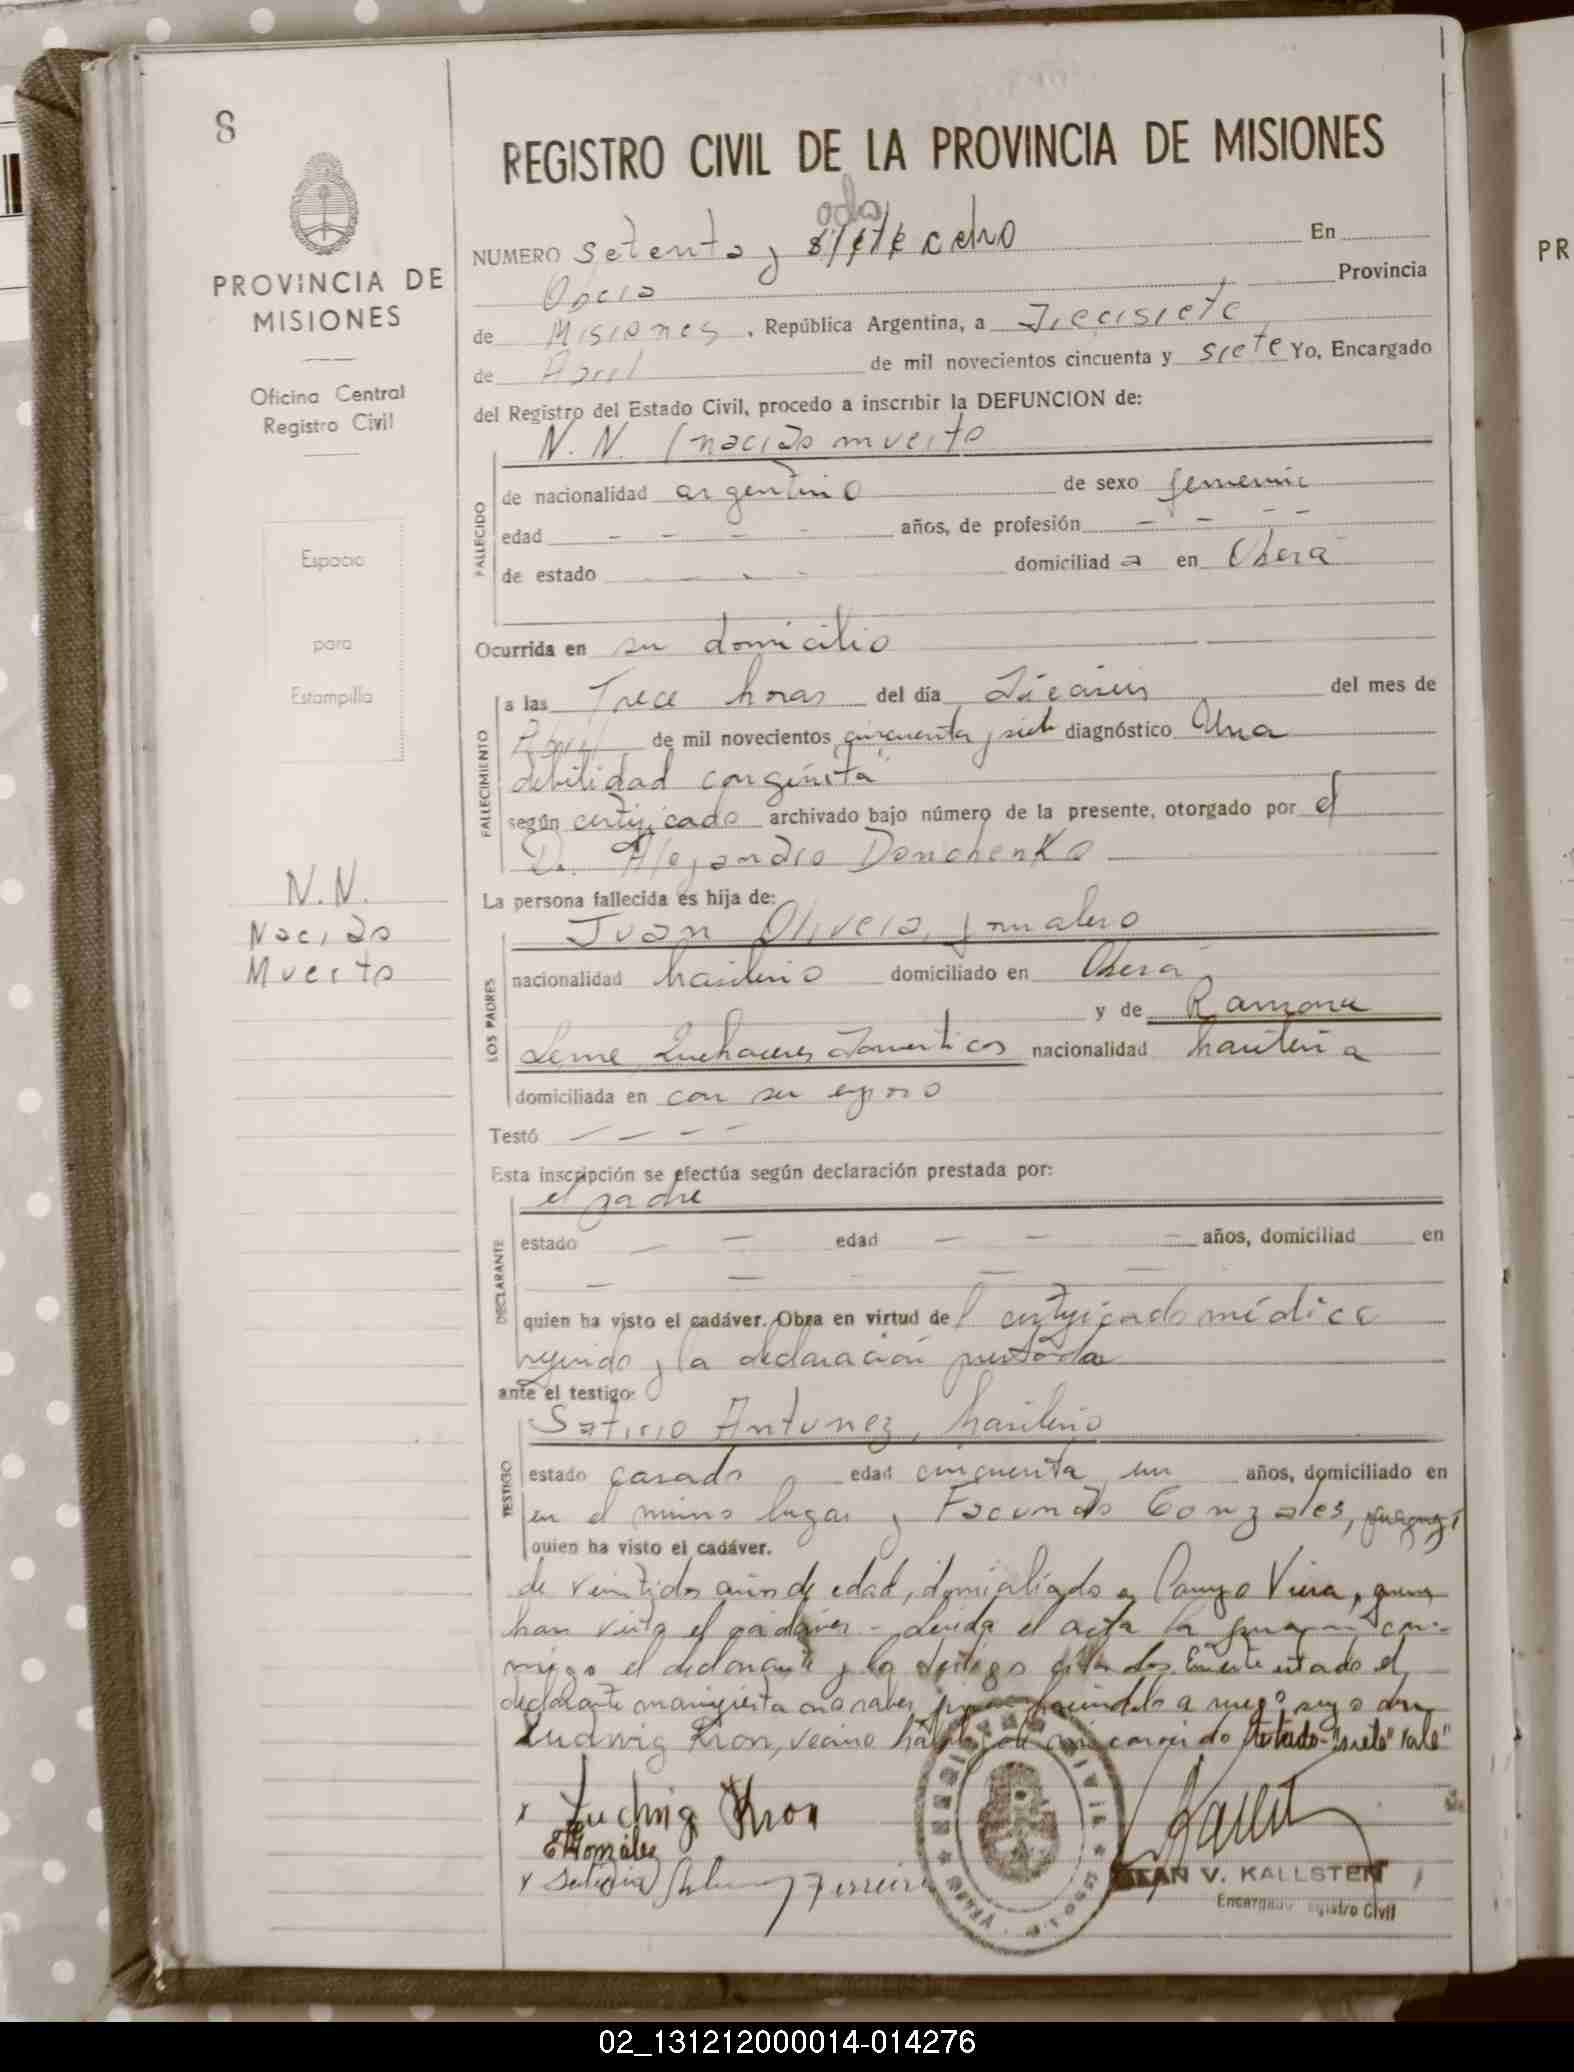 8
PROVINCIA DE
MISIONES
Oficina Central
Registro Civil
Espacio
para
Estampilla
N.N.
Nacido
Muerto
REGISTRO CIVIL DE LA PROVINCIA DE MISIONES
ocho
NUMERO Setenta y siete ocho En
Oberá Provincia
de Misiones, República Argentina, a Diecisiete
de Abril de mil novecientos cincuenta y siete Yo, Encargado
del Registro del Estado Civil, procedo a inscribir la DEFUNCION de:
N. N. (nacido muerto
FALLECIDO
de nacionalidad argentino de sexo femenino
edad - - - - años, de profesión - - - -
de estado - - - domiciliad a en Oberá
Ocurrida en su domicilio
FALLECIMIENTO
a las Trece horas del día Dieciseis del mes de
Abril de mil novecientos cincuenta y siete diagnóstico Una
debilidad congénita
según certificado archivado bajo número de la presente, otorgado por el
D. Alejandro Donchenko
La persona fallecida es hija de:
LOS PADRES
Juan Olivera, jornalero
nacionalidad brasilero domiciliado en Oberá
y de Ramona
Leme, Quehaceres domesticos nacionalidad brasilera
domiciliada en con su esposo
Testó - - - -
Esta inscripción se efectúa según declaración prestada por:
DECLARANTE
el padre
estado - - edad - - - años, domiciliad en
- - - -
quien ha visto el cadáver. Obra en virtud de l certificado médico
referido y la declaración prestada
ante el testigo:
TESTIGO
Satirio Antunez, brasilero
estado casado edad cincuenta un años, domiciliado en
en el mismo lugar y Facundo Gonzales,
quien ha visto el cadáver.
de veintidos años de edad, domiciliado en Campo Viera, quienes
han visto el cadáver - Leida el acta la firman con-
migo el declarante y los testigos citados. En este estado el
declarante manifiesta no saber firmar haciendolo a ruego suyo don
Ludwig Kron, vecino hábil de mi conocido testado-"siete" Vale"
x Ludwig Kron
F Gonzáles
x Ferreira
REGISTRO CIVIL
V. KALLSTEN
Encargado Registro Civil
PR
02_131212000014-014276